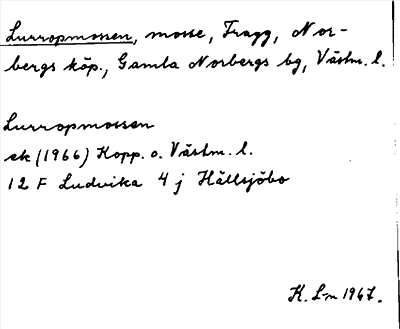 Lurropmossen, mosse, Fragg, Nor-
bergs köp., Gamla Norbergs bg, Västm. l.
Lurropmossen
ek (1966) Kopp. o. Västm. l.
12 F Ludvika 4 j Hällsjöbo
K. L-m 1967.